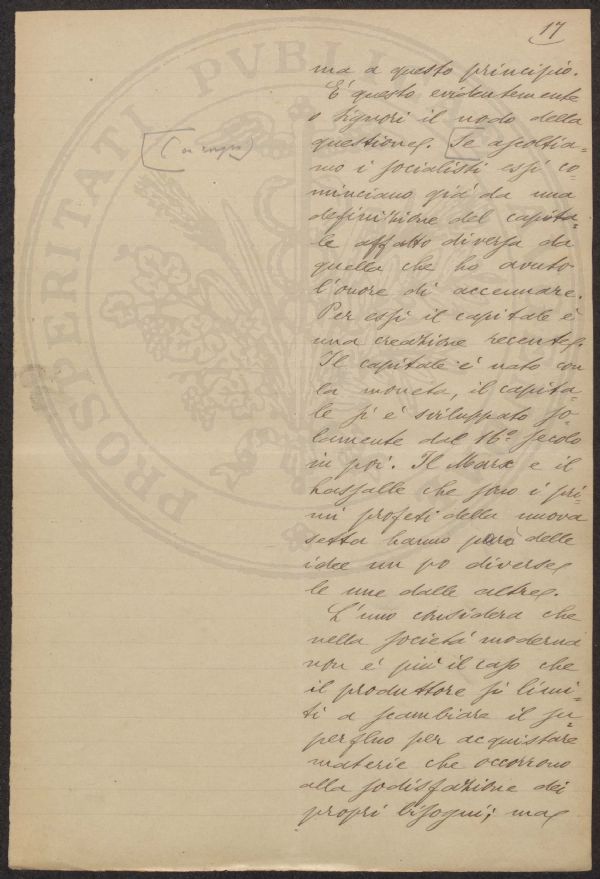 17
ma a questo principio.
E' questo evidentemente
o Signori il nodo della
questione. [Se ascoltia=
mo i socialisti essi co=
minciano giá da una
definizione del capita=
le affatto diversa da
quella che ho avuto
l'onore di accennare.
Per essi il capitale è
una creazione recente.
Il capitale è nato con
la moneta, il capita=
le si è sviluppato so=
lamente dal 16º secolo
in poi. Il Marx e il
Lassalle che sono i pri=
mi profeti della nuova
setta hanno però delle
idee un po diverse
le une dalle altre.
L'uno considera che
nella societá moderna
non è più il caso che
il produttore si limi=
ti a scambiare il su=
perfluo per acquistare
materie che occorrono
alla sodisfazione dei
propri bisogni; ma
PROSPERITATI PVBLI